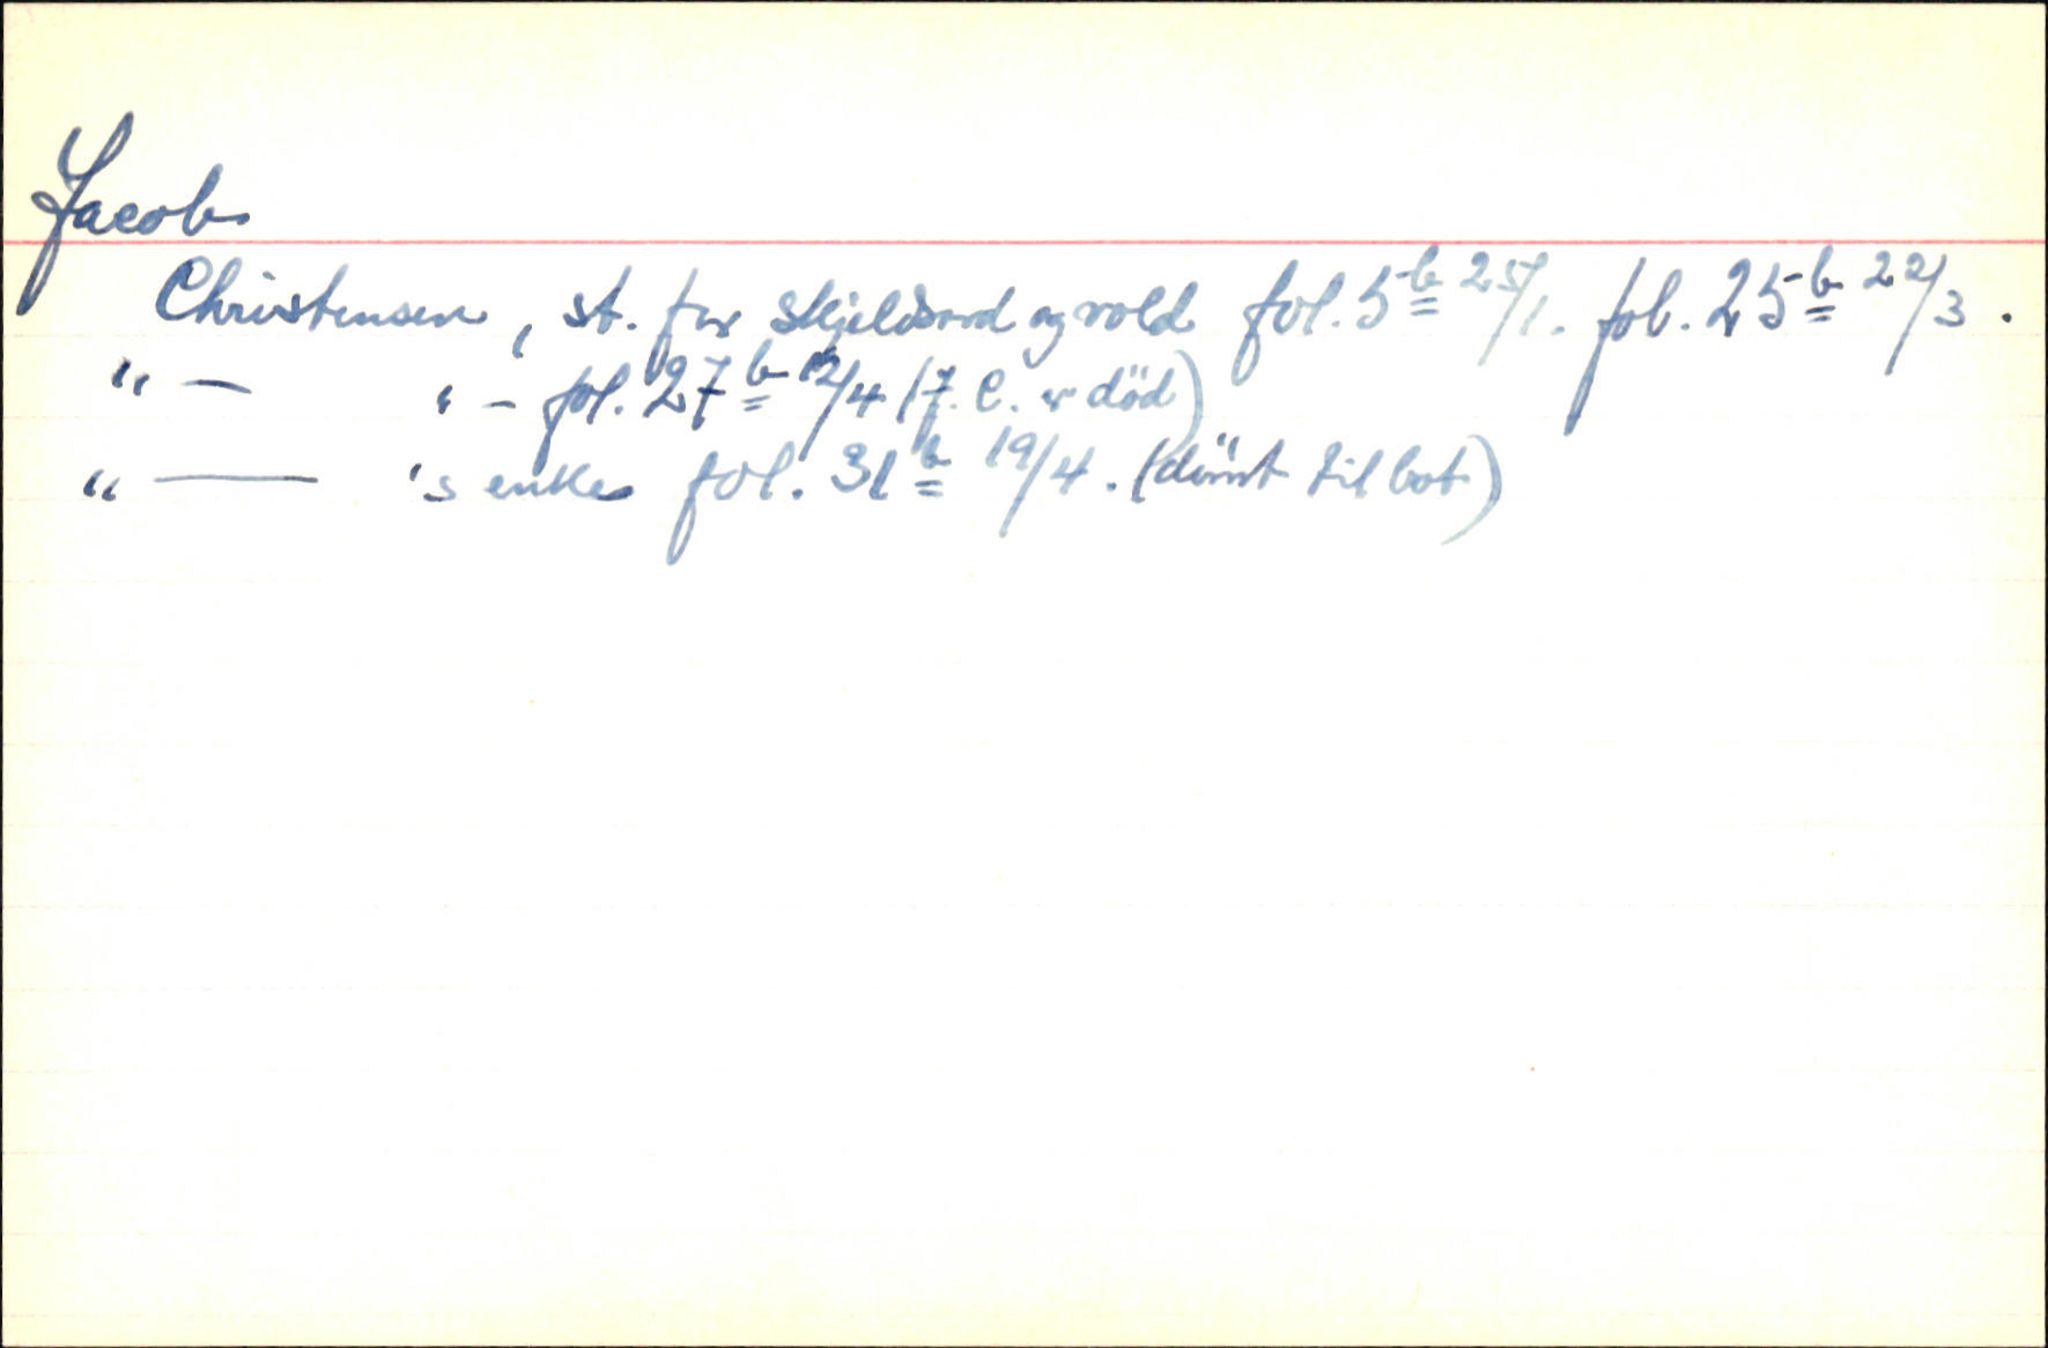 Jacob
Christensen, st. for skjeldsord og vold fol. 5 b 25/1. fol. 25 b 22/3.
" — " — fol. 27 b 12/4 (J. C. er död)
" — 's enke fol. 31 b 19/4. (dömt til bot)